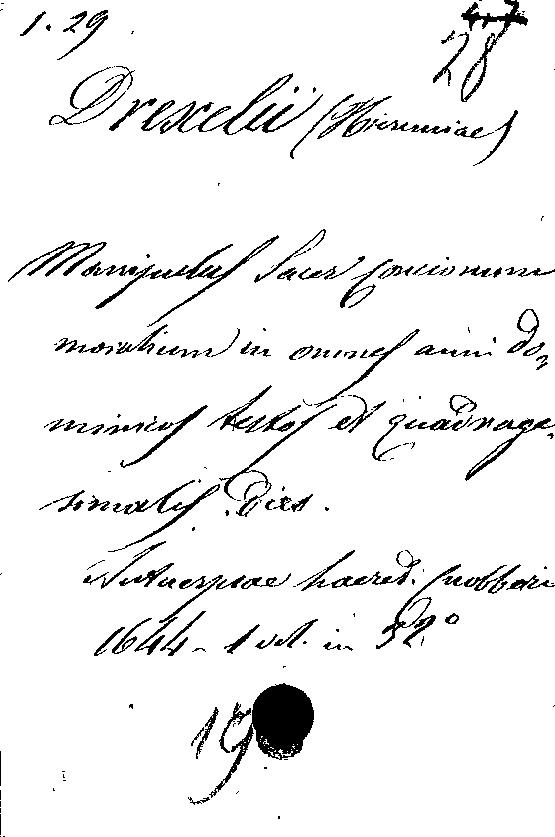 1.29
28
Drexelii (Hieremiae)
Manipulus Sacer Concionum
moralium in omnes anni Do,
minicos festos et quadrage,
simalis Dies.
Antuerpiae haered. Cnobbari
1644 - 1 vol. in 32°
19